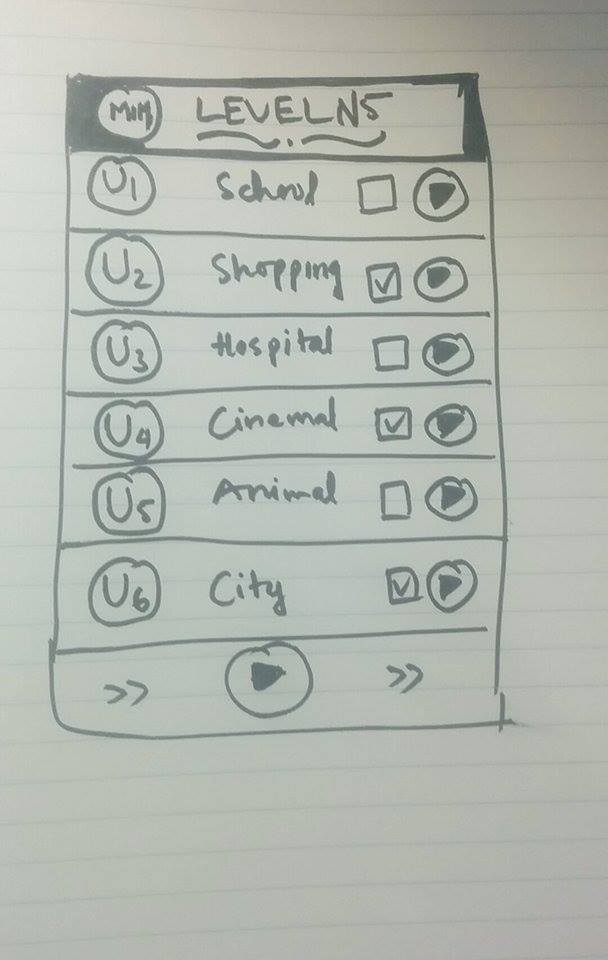 MIM LEVELN5
U1 School
U2 Shopping
U3 Hospital
U4 Cinemal
U5 Animal
U6 City